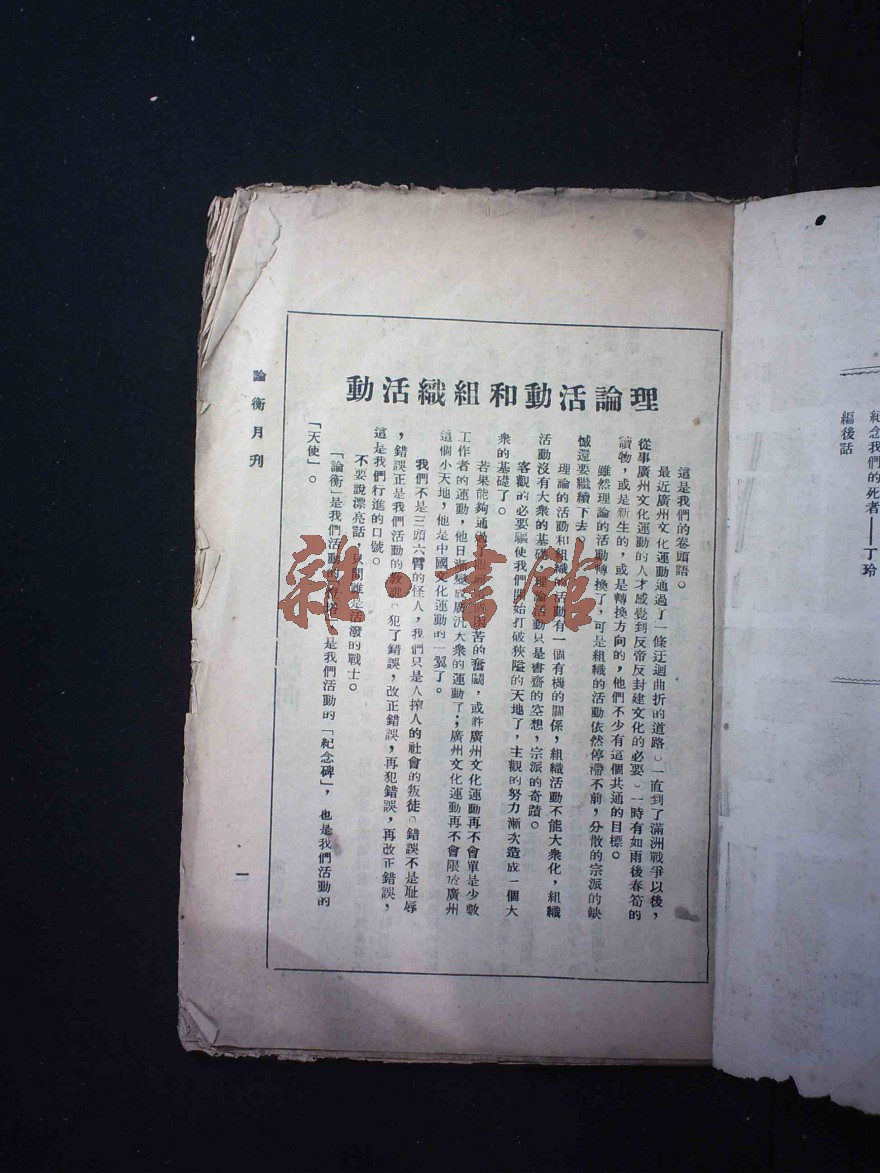 紀念我們的死者——丁玲
編後話
理論活動和組織活動
這是我們的卷頭語。
最近廣州文化運動通過了一條迂迴曲折的道路。一直到了滿洲戰爭以後，
從事廣州文化運動的人才感覺到反帝反封建文化的必要。一時有如雨後春筍的
讀物，或是新生的，或是轉換方向的，他們不少有這個共通的目標。
雖然理論的活動轉換了，可是組織的活動依然停滯不前，分散的宗派的缺
憾還要繼續下去
理論的活動和組織的活動有一個有機的關係，組織活動不能大衆化，組織
活動沒有大衆的基礎，理論活動只是書齋的空想，宗派的奇蹟。
客觀的必要驅使我們開始打破狹隘的天地了，主觀的努力漸次造成一個大
衆的基礎了。
若果能夠通過了 困苦的奮鬭，或許廣州文化運動再不會單是少數
工作者的運動，他日漸變成廣汎大衆的運動了；廣州文化運動再不會限於廣州
這個小天地，他是中國文化運動的一翼了。
我們不是三頭六臂的怪人，我們只是人搾人的社會的叛徒。錯誤不是耻辱
，錯誤正是我們活動的教訓。犯了錯誤，改正錯誤，再犯錯誤，再改正錯誤，
這是我們行進的口號。
不要說漂亮話，只問誰是活潑的戰士。
「論衡」是我們活動的 ，是我們活動的「紀念碑」，也是我們活動的
「天使」。
論衡月刋
一
雜·書館